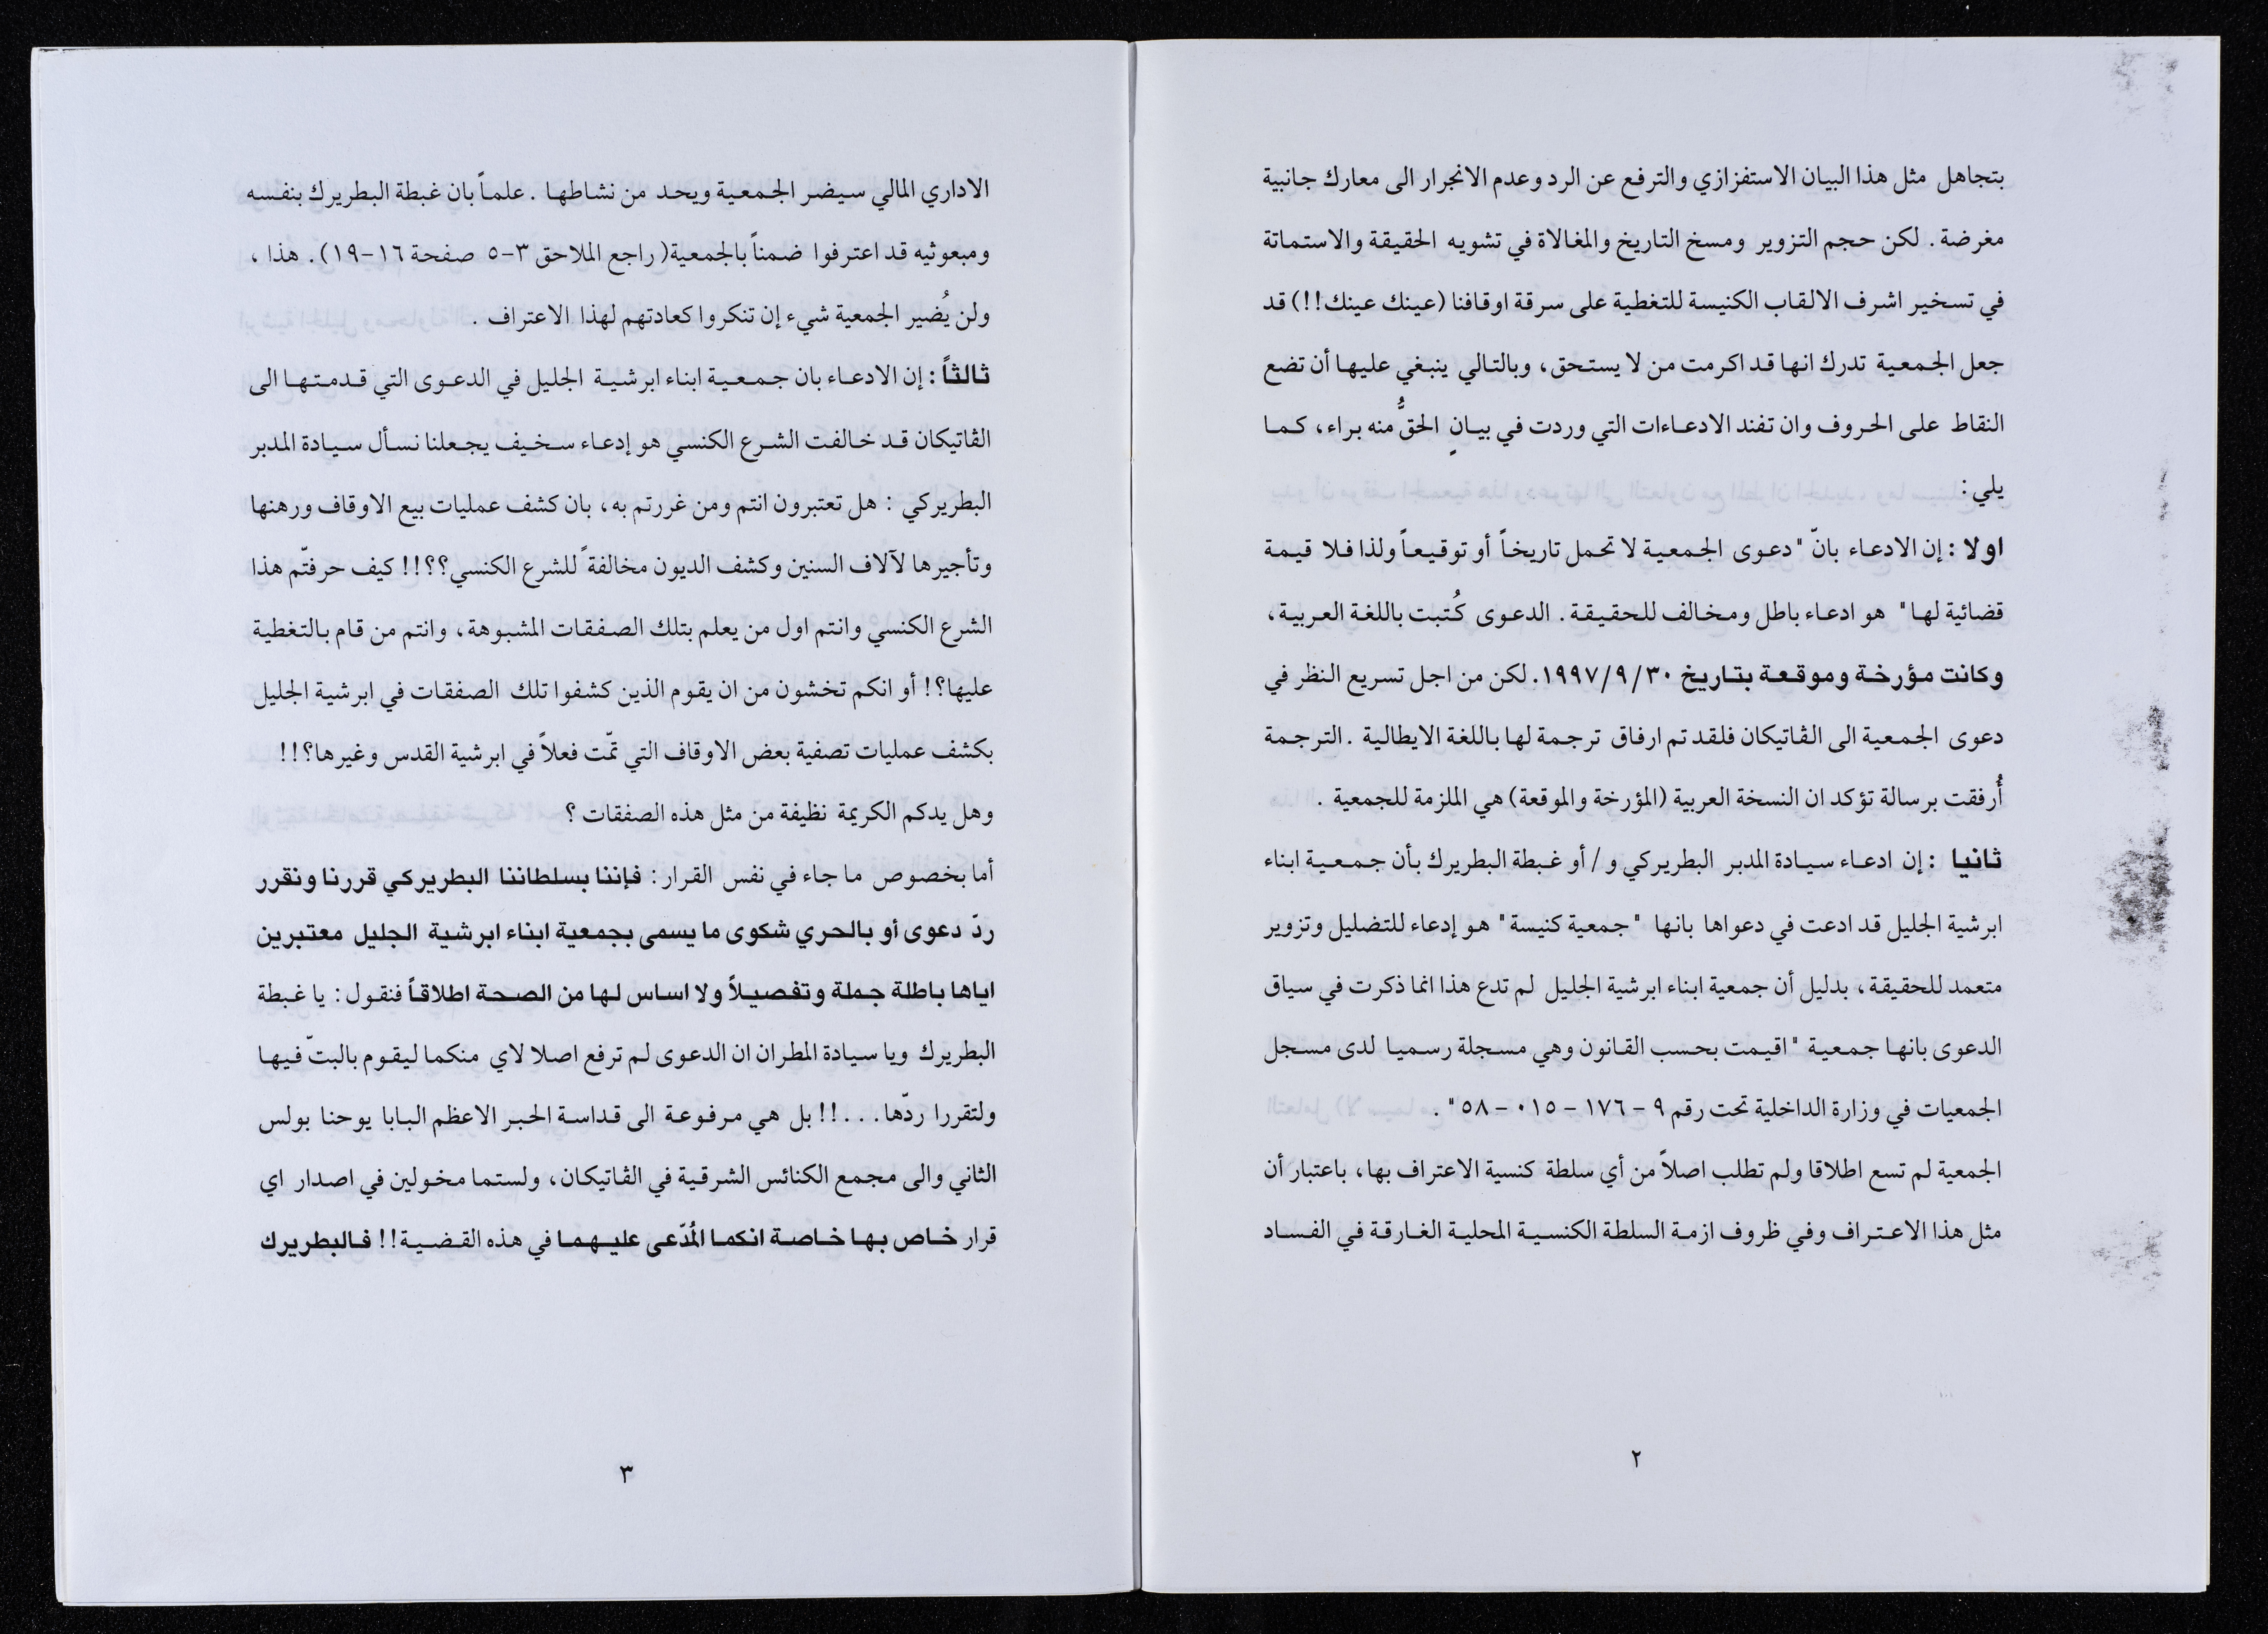 بتجاهل مثل هذا البيان الاستفزازي والترفع عن الرد وعدم الانجرار الى معارك جانبية
مغرضة. لكن حجم التزوير ومسخ التاريخ والمغالاة في تشويه الحقيقة والاستماتة
في تسخير اشرف الالقاب الكنيسة للتغطية على سرقة اوقافنا (عينك عينك!!) قد
جعل الجمعية تدرك انها قد اكرمت من لا يستحق، وبالتالي ينبغي عليها أن تضع
النقاط على الحروف وان تفند الادعاءات التي وردت في بيانٍ الحقُّ منه براء، كما
يلي:
اولا : إن الادعاء بانّ "دعوى الجمعية لا تحمل تاريخاً أو توقيعاً ولذا فلا قيمة
قضائية لها" هو ادعاء باطل ومخالف للحقيقة. الدعوى كُتبت باللغة العربية،
وكانت مؤرخة وموقعة بتاريخ ١٩٩٧/٩/٣٠. لكن من اجل تسريع النظر في
دعوى الجمعية الى الڤاتيكان فلقد تم ارفاق ترجمة لها باللغة الايطالية .الترجمة
أُرفقت برسالة تؤكد ان النسخة العربية (المؤرخة والموقعة) هي الملزمة للجمعية .
ثانيا : إن ادعاء سيادة المدبر البطريركي و/أو غبطة البطريرك بأن جمعية ابناء
ابرشية الجليل قد ادعت في دعواها بانها "جمعية كنيسة" هو إدعاء للتضليل وتزوير
متعمد للحقيقة، بدليل أن جمعية ابناء ابرشية الجليل لم تدع هذا انما ذكرت في سياق
الدعوى بانها جمعية "اقيمت بحسب القانون وهي مسجلة رسميا لدى مسجل
الجمعيات في وزارة الداخلية تحت رقم ٩ - ١٧٦ - ٠١٥ - ٥٨".
الجمعية لم تسع اطلاقا ولم تطلب اصلاً من أي سلطة كنسية الاعتراف بها، باعتبار أن
مثل هذا الاعتراف وفي ظروف ازمة السلطة الكنسية المحلية الغارقة في الفساد
٢
الاداري المالي سيضر الجمعية ويحد من نشاطها . علماً بان غبطة البطريرك بنفسه
ومبعوثيه قد اعترفوا ضمناً بالجمعية (راجع الملاحق ٣-٥ صفحة ١٦-١٩). هذا ،
ولن يُضير الجمعية شيء إن تنكروا كعادتهم لهذا الاعتراف .
ثالثاً : إن الادعاء بان جمعية ابناء ابرشية الجليل في الدعوى التي قدمتها الى
الڤاتيكان قد خالفت الشرع الكنسي هو إدعاء سخيف يجعلنا نسأل سيادة المدبر
البطريركي : هل تعتبرون انتم ومن غررتم به، بان كشف عمليات بيع الاوقاف ورهنها
وتأجيرها لآلاف السنين وكشف الديون مخالفةً للشرع الكنسي؟؟!! كيف حرفتّم هذا
الشرع الكنسي وانتم اول من يعلم بتلك الصفقات المشبوهة، وانتم من قام بالتغطية
عليها؟! أو انكم تخشون من ان يقوم الذين كشفوا تلك الصفقات في ابرشية الجليل
بكشف عمليات تصفية بعض الاوقاف التي تمّت فعلاً في ابرشية القدس وغيرها؟!!
وهل يدكم الكريمة نظيفة من مثل هذه الصفقات ؟
أما بخصوص ما جاء في نفس القرار: فإننا بسلطاننا البطريركي قررنا ونقرر
ردّ دعوى أو بالحري شكوى ما يسمى بجمعية ابناء ابرشية الجليل معتبرين
اياها باطلة جملة وتفصيلاً ولا اساس لها من الصحة اطلاقاً فنقول: يا غبطة
البطريرك ويا سيادة المطران ان الدعوى لم ترفع اصلا لاي منكما ليقوم بالبتّ فيها
ولتقررا ردّها...!! بل هي مرفوعة الى قداسة الحبر الاعظم البابا يوحنا بولس
الثاني والى مجمع الكنائس الشرقية في الڤاتيكان، ولستما مخولين في اصدار اي
قرار خاص بها خاصة انكما المُدّعى عليهما في هذه القضية!! فالبطريرك
٣